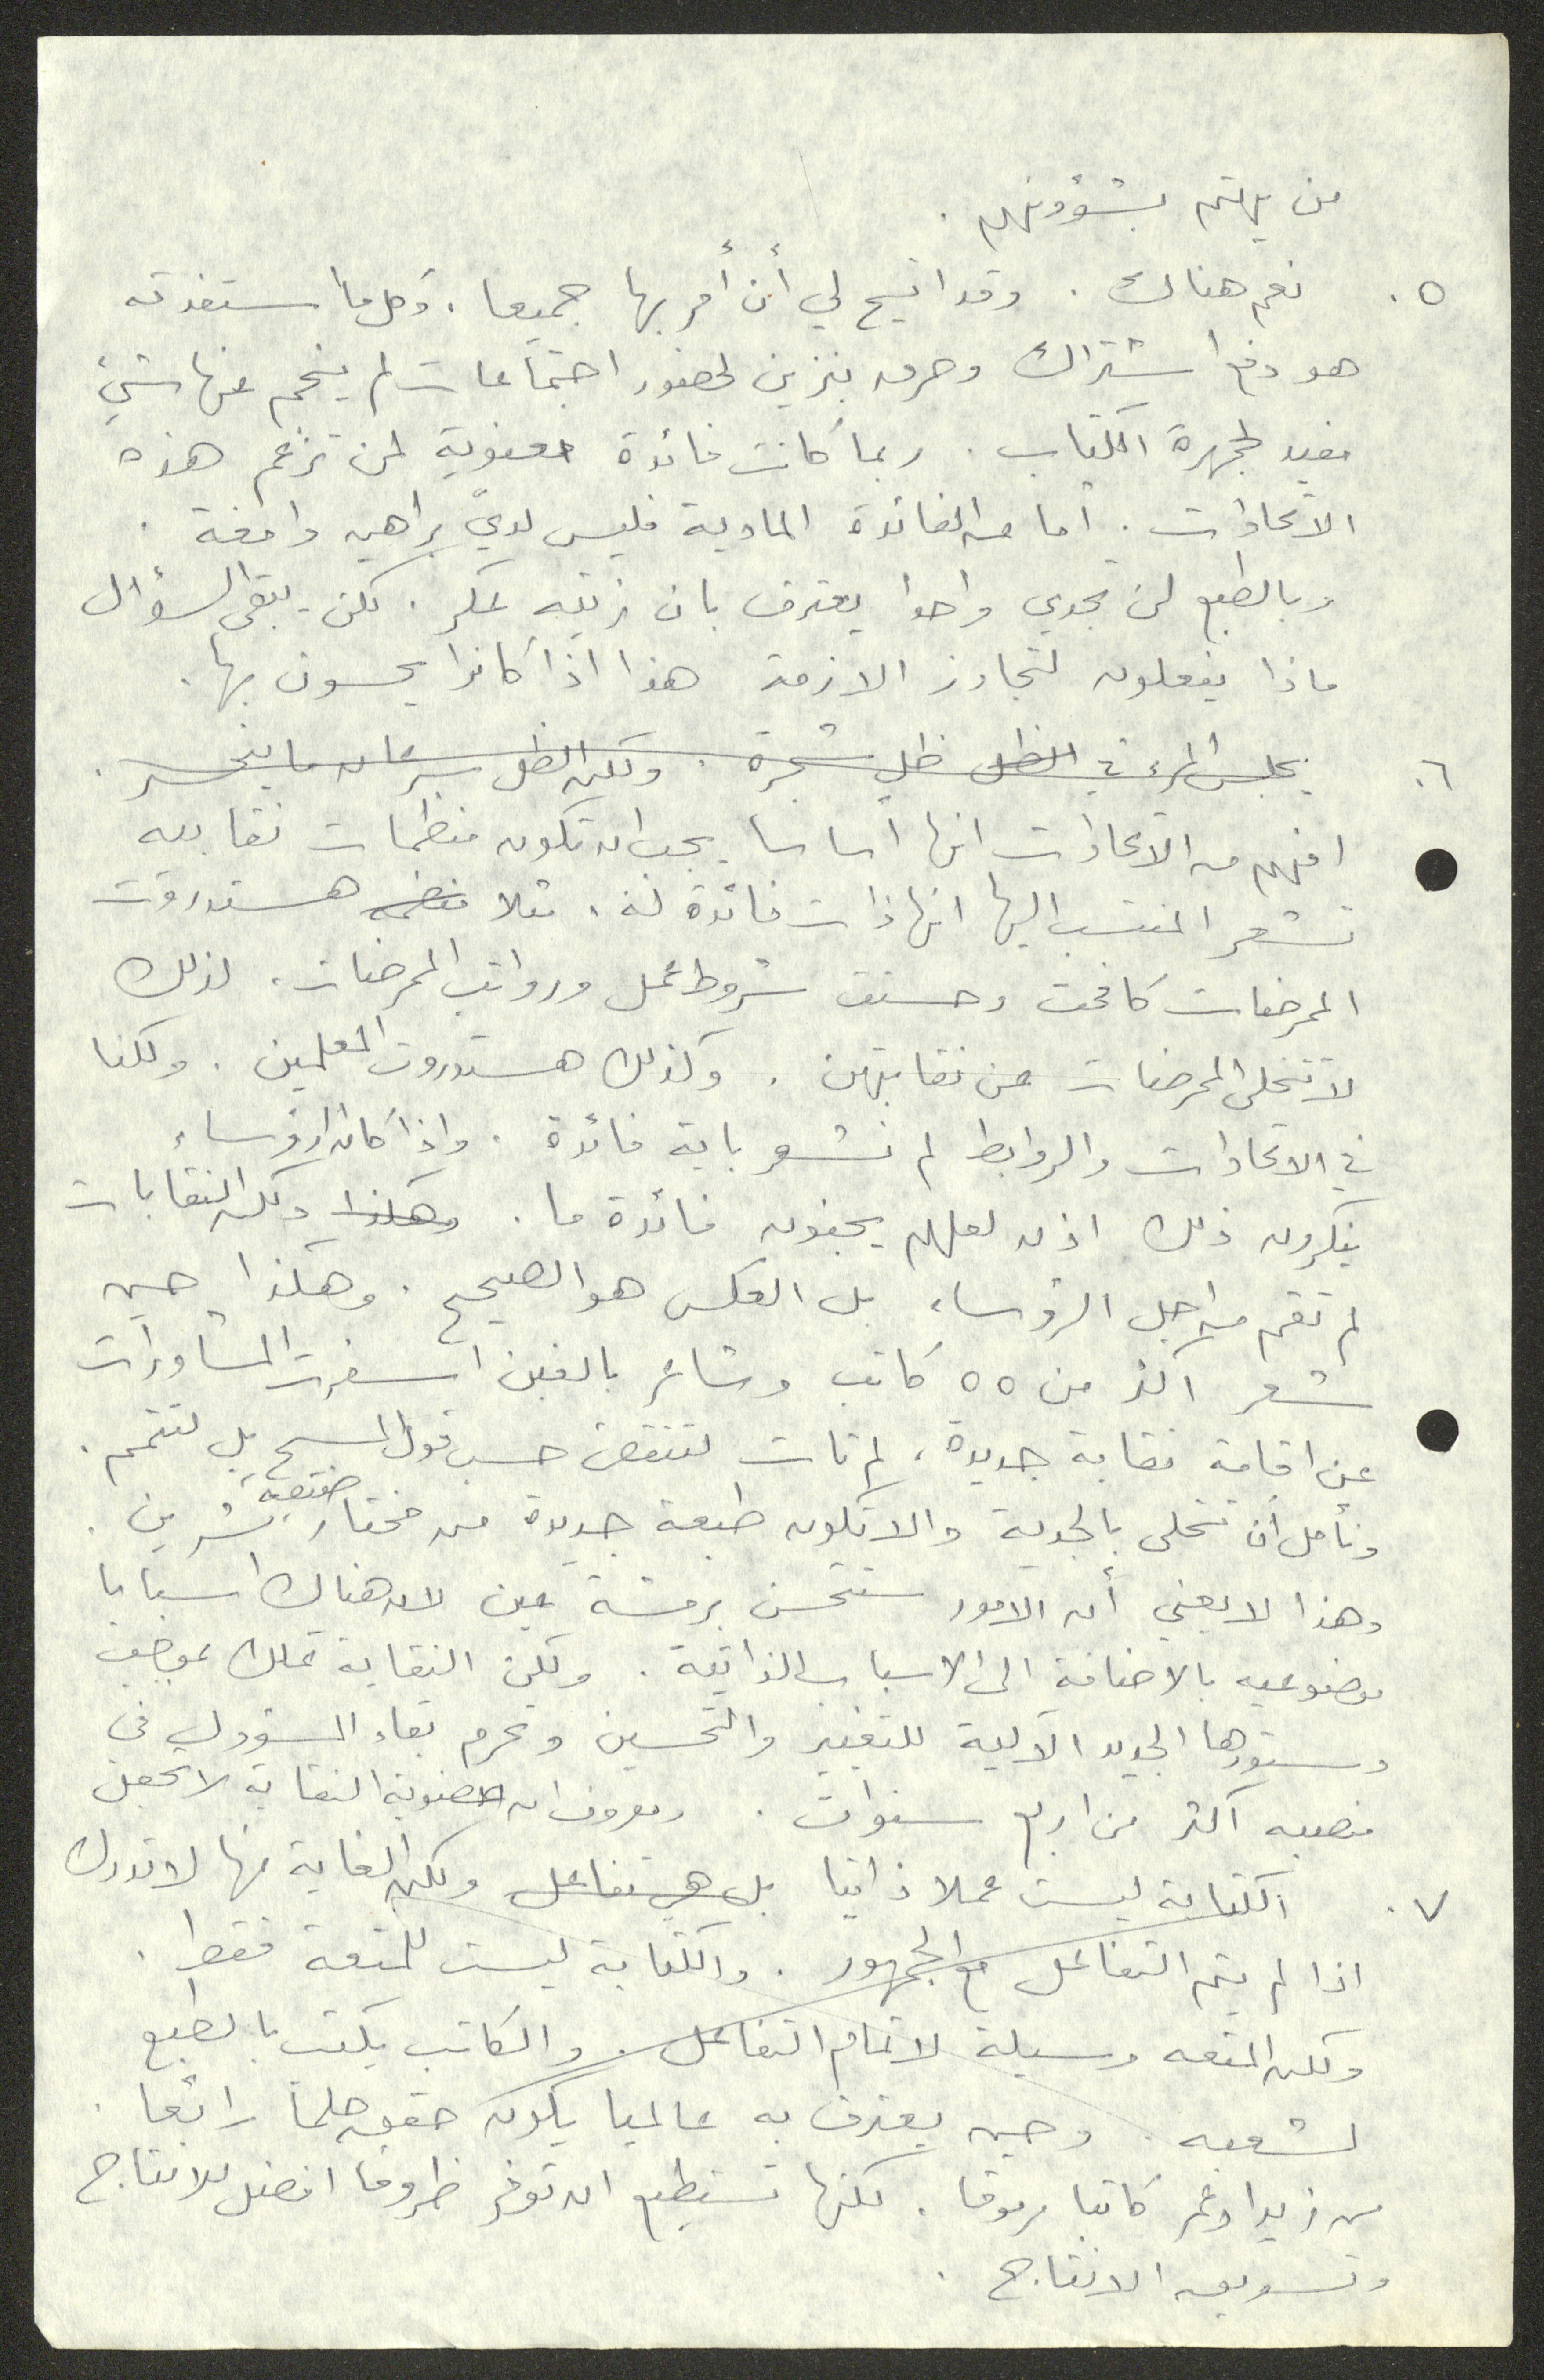 من يهتم بشؤونهم .
٥. نعم هناك . وقد اتيح لي أن أمر بها جميعا . وكل ما استفدته
هو دفع اشتراك وصرف بنزين لحضور اجتماعات لم ينجم عنها شيئ
مفيد لجمهرة الكتاب . ربما كانت فائدة معنوية لمن تزعم هذه
الاتحادات . أما من الفائدة المادية فليس لديّ براهين دامغة .
وبالطبع لن تجدي واحدا يعترف بان زيته عكر . لكن يبقى السؤال
ماذا يفعلون لتجاوز الازمة هذا اذا كانوا يحسون بها .
٦. يجلس المرء في الظل ظل شجرة . ولكن الظل سرعان ما ينحسر .
افهم من الاتحادات انها أساسا يجب ان تكون منظمات نقابيه
تشعر المنتسب اليها انها ذات فائدة له . مثلا منظمه هستدروت
الممرضات كافحت وحسنت شروط عمل ورواتب الممرضات . لذلك
لا تتخلى الممرضات عن نقابتهن . وكذلك هستدروت المعلمين . ولكنا
في الاتحادات والروابط لم نشعر باية فائدة . واذا كان الرؤساء
ينكرون ذلك اذن لعلهم يجنون فائدة ما . وهكذا ولكن النقابات
لم تقم من اجل الرؤساء بل العكس هو الصحيح . وهكذا حين
شعر اكثر من ٥٥ كاتب وشاعر بالغبن اسفرت المشاورات
عن اقامة نقابة جديدة ، لم تات لتنقض حسب قول المسيح بل لتتمم .
ونأمل أن تتحلى بالجدية والا تكون طبعة جديدة من مختار ضيعة تشرين .
وهذا لا يعني أن الامور ستتحسن برمشة عين لان هناك اسبابا
موضوعيه بالاضافة الى الاسباب الذاتية . ولكن النقابة تملك بموجب
دستورها الجديد الآلية للتغيير والتحسين وتحرم بقاء المسؤول في
منصبه اكثر من اربع سنوات . ومعروف ان عضوية النقابة لا تجعل
٧. الكتابة ليست عملا ذاتيا بل هي تفاعل ولكن الغاية منها لا تدرك
اذا لم يتم التفاعل مع الجمهور . والكتابة ليست للمتعة فقط .
ولكن المتعه وسيلة لاتمام التفاعل . والكاتب يكتب بالطبع
لشعبه . وحين يعترف به عالميا يكون حقق حلما رائعا .
من زيد او عمر كاتبا مرموقا . لكنها تستطيع ان توفر ظروفا افضل للانتاج
وتسويق الانتاج .